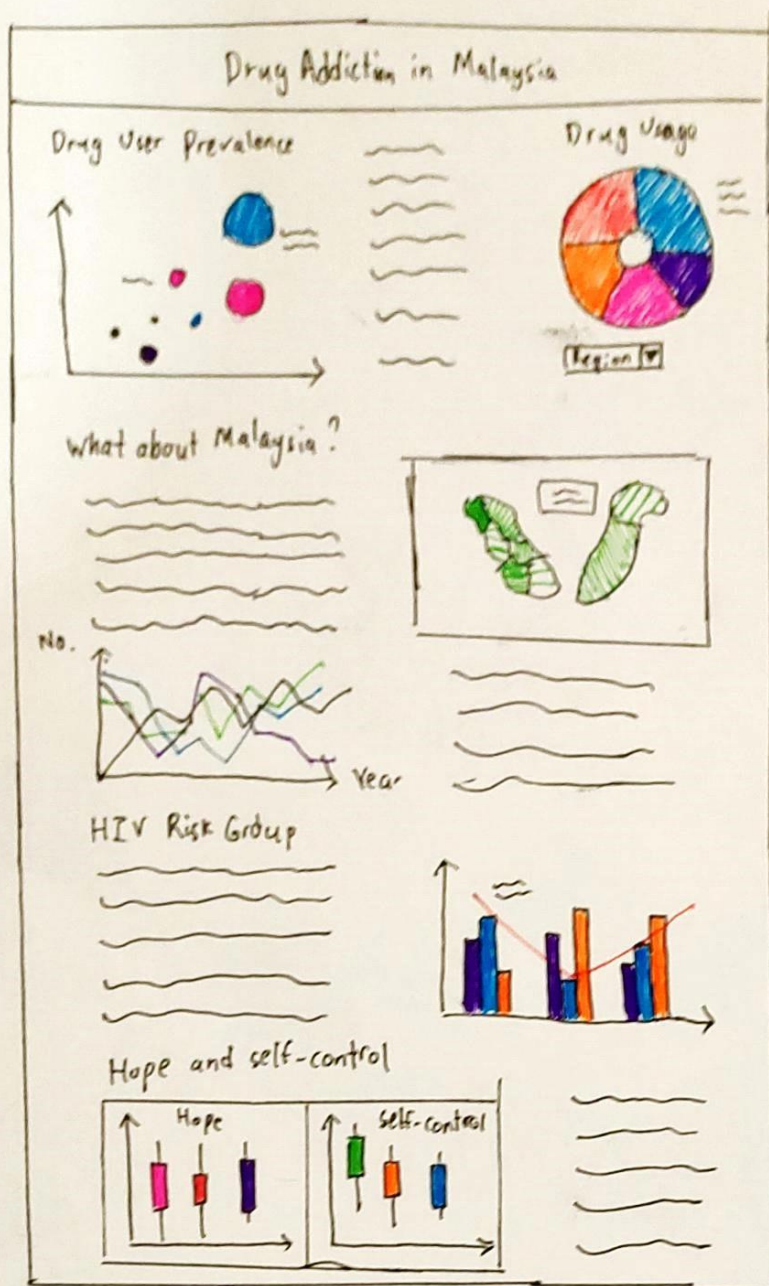 Drug Addiction in Malaysia
Drug User Prevalence
Drug Usage
Region
What about Malaysia?
No.
Year
HIV Risk Group
Hope and self-control
Hope
Self-control